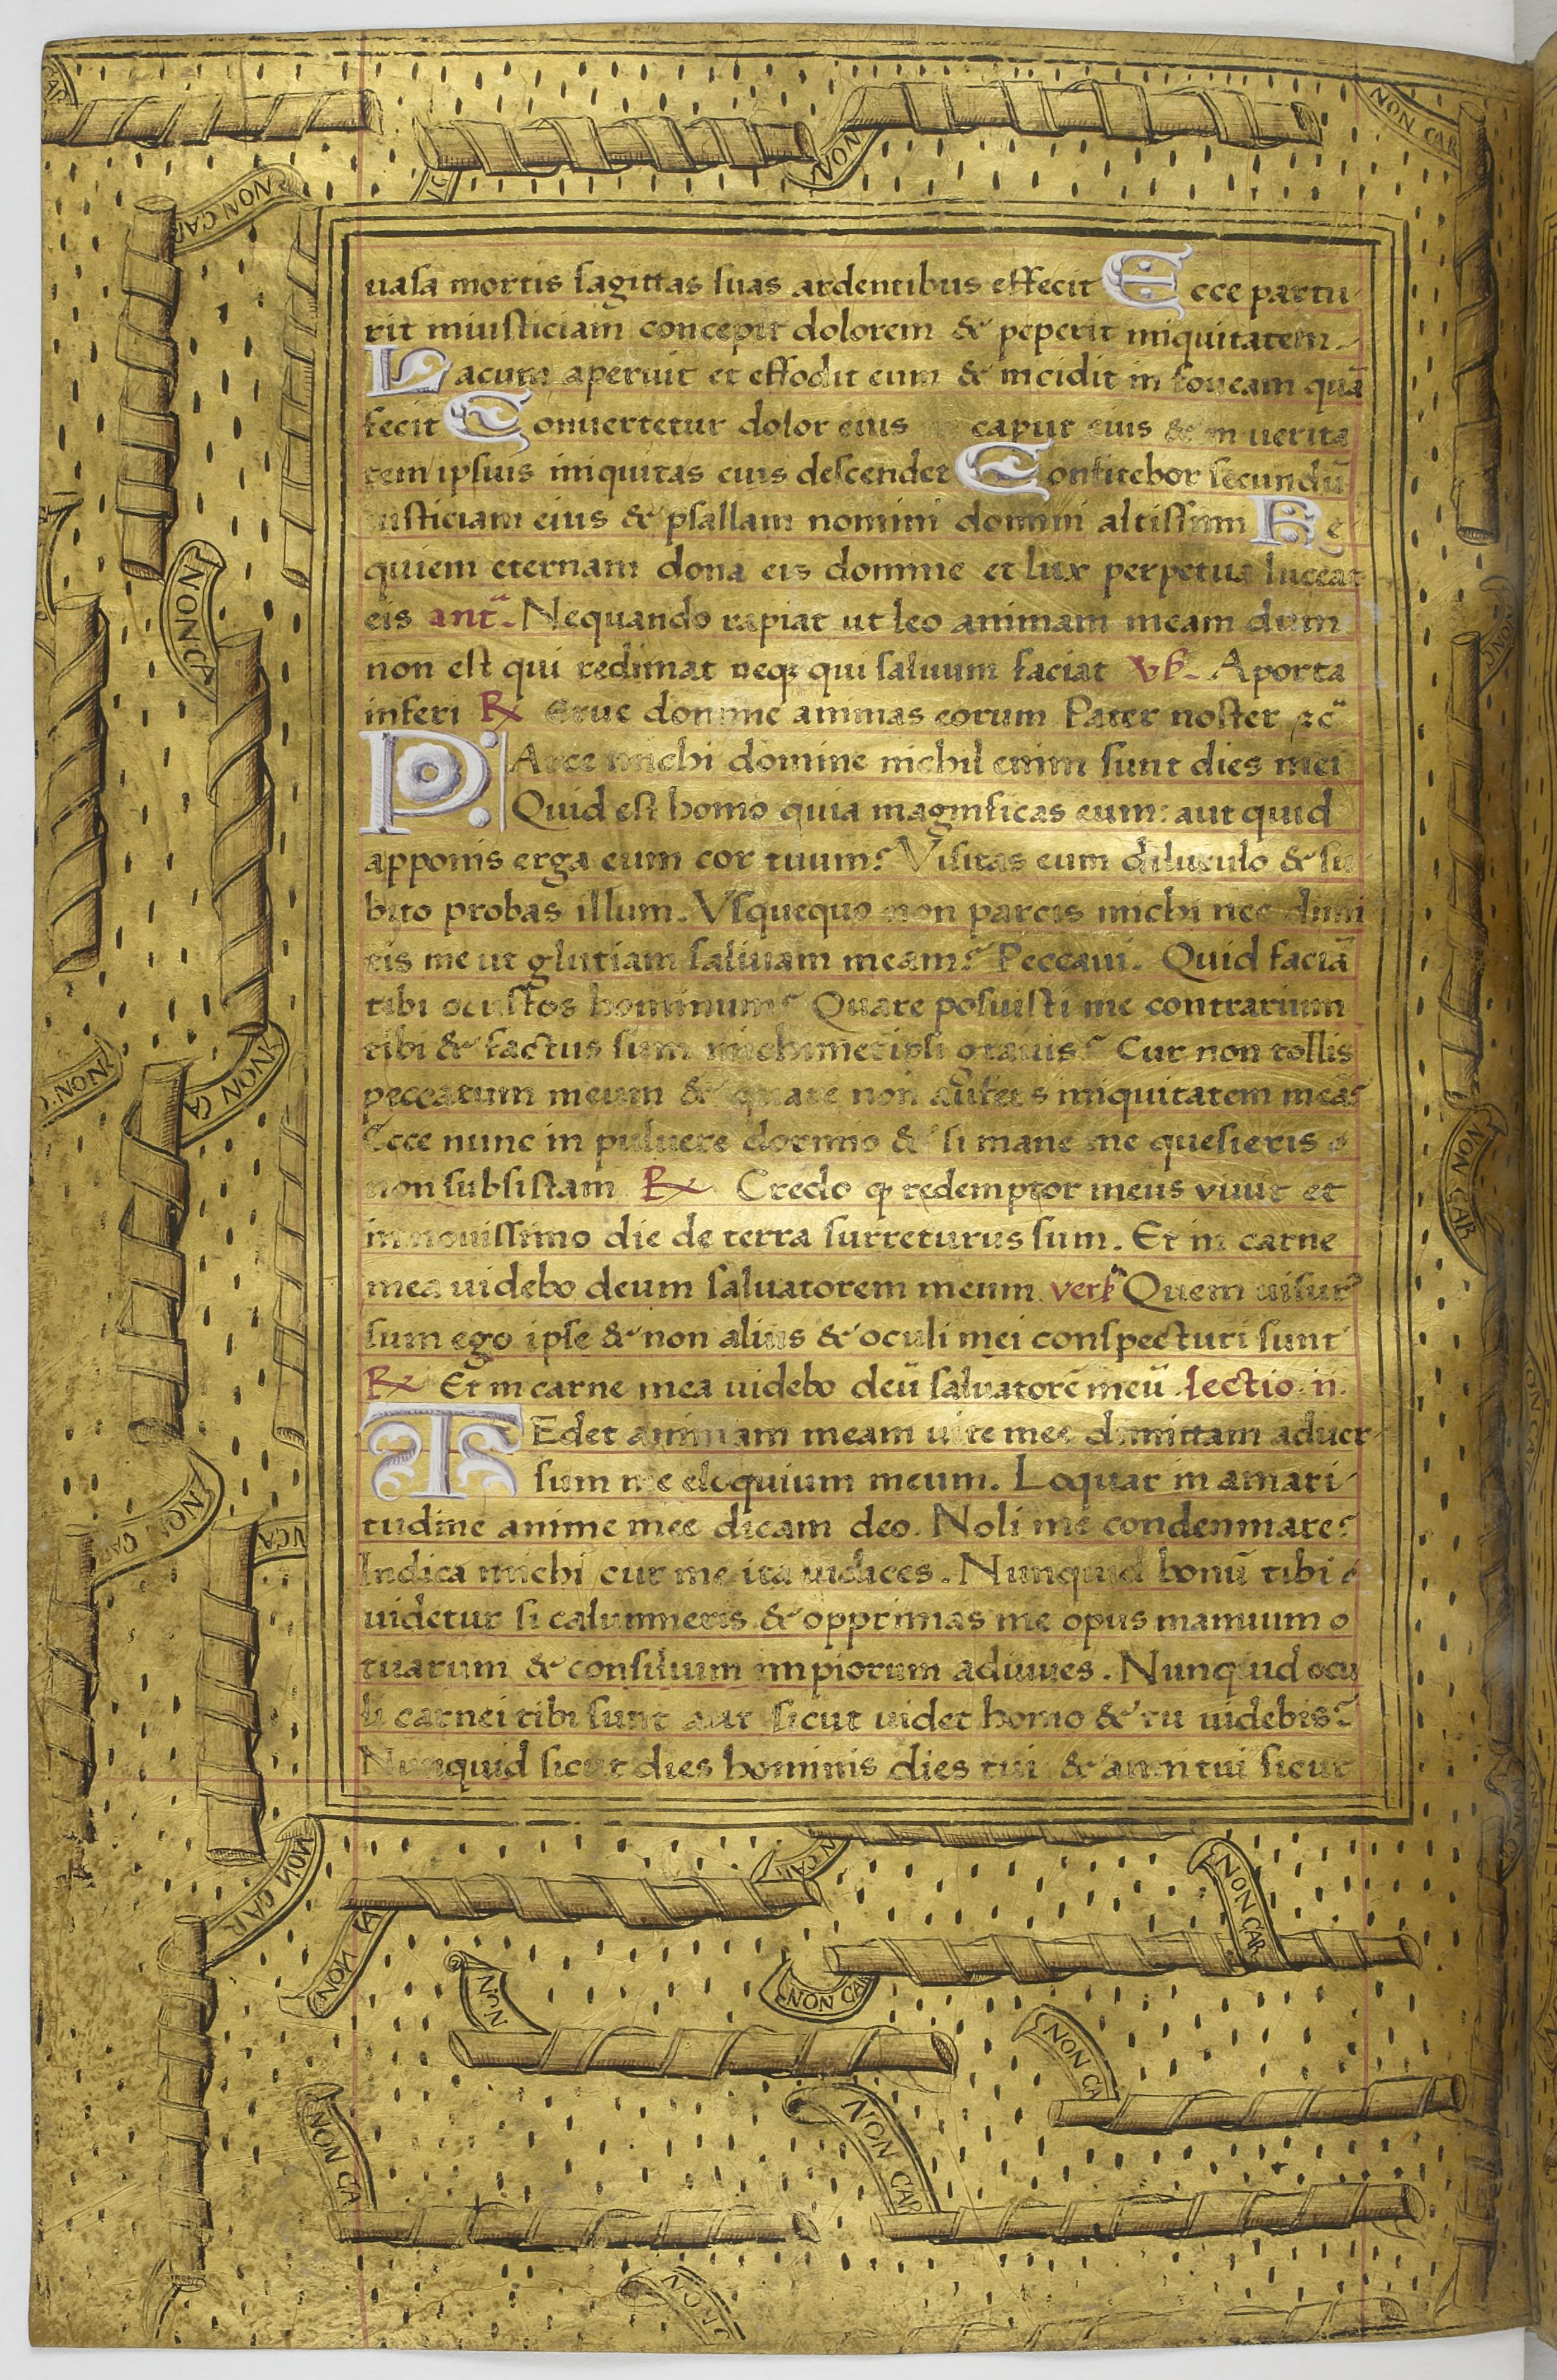 uasa mortis sagittas suas ardentibus effecit Ecce partu
rit iniusticiam concepit dolorem & peperit iniquitatem.
Lacum aperuit et effodit eum & incidit in foueam quā
fecit Conuertetur dolor eius caput eius & in uerita
tem ipsius iniquitas eius descendet Confitebor secundū
iusticiam eius & psallam nomini domini altissimi Re
quiem eternam dona eis domine et lux perpetua luceat
eis antᵃ. Nequando rapiat ut leo animam meam dum
non est qui redimat neqꝫ qui saluum faciat A porta
inferi ℟ Erue domine animas eorum Pater noster ⁊c̄
PArce michi domine nichil enim sunt dies mei
Quid est homo quia magnificas eum: aut quid
apponis erga eum cor tuum? Visitas eum diluculo & su
bito probas illum. Vsquequo non parcis michi nec dimi
tis me ut glutiam saliuam meam? Peccaui. Quid faciā
tibi o custos hominum? Quare posuisti me contrarium
tibi & factus sum michimetipsi grauis? Cur non tollis
peccatum meum & quare non aufers iniquitatem meā?
Ecce nunc in puluere dormio & si mane me quesieris
non subsistam ℟ Credo ꝙ redemptor meus viuit et
in nouissimo die de terra surreturus sum. Et in carne
mea uidebo deum saluatorem meum. Quem uisurꝰ
sum ego ipse & non alius & oculi mei conspecturi sunt
℟ Et in carne mea uidebo deū saluatorē meū. lectio. ii.
TEdet animam meam uite mee dimittam aduer
sum me eloquium meum. Loquar in amari
tudine anime mee dicam deo. Noli me condemnare?
Indica michi cur me ita iudices. Nunquid bonū tibi
uidetur si calumneris & opprimas me opus manuum
tuarum & consilium impiorum adiuues. Nunquid ocu
li carnei tibi sunt aut sicut uidet homo & tu uidebis?
Nunquid sicut dies hominis dies tui & anni tui sicut
NON
NON CAR
NON CAR
NON C
NON CA
NON
NON CAR
NON CA
NON CAR
NON CA
NON CAR
NON CA
NON
NON CA
NON CA
NON CAR